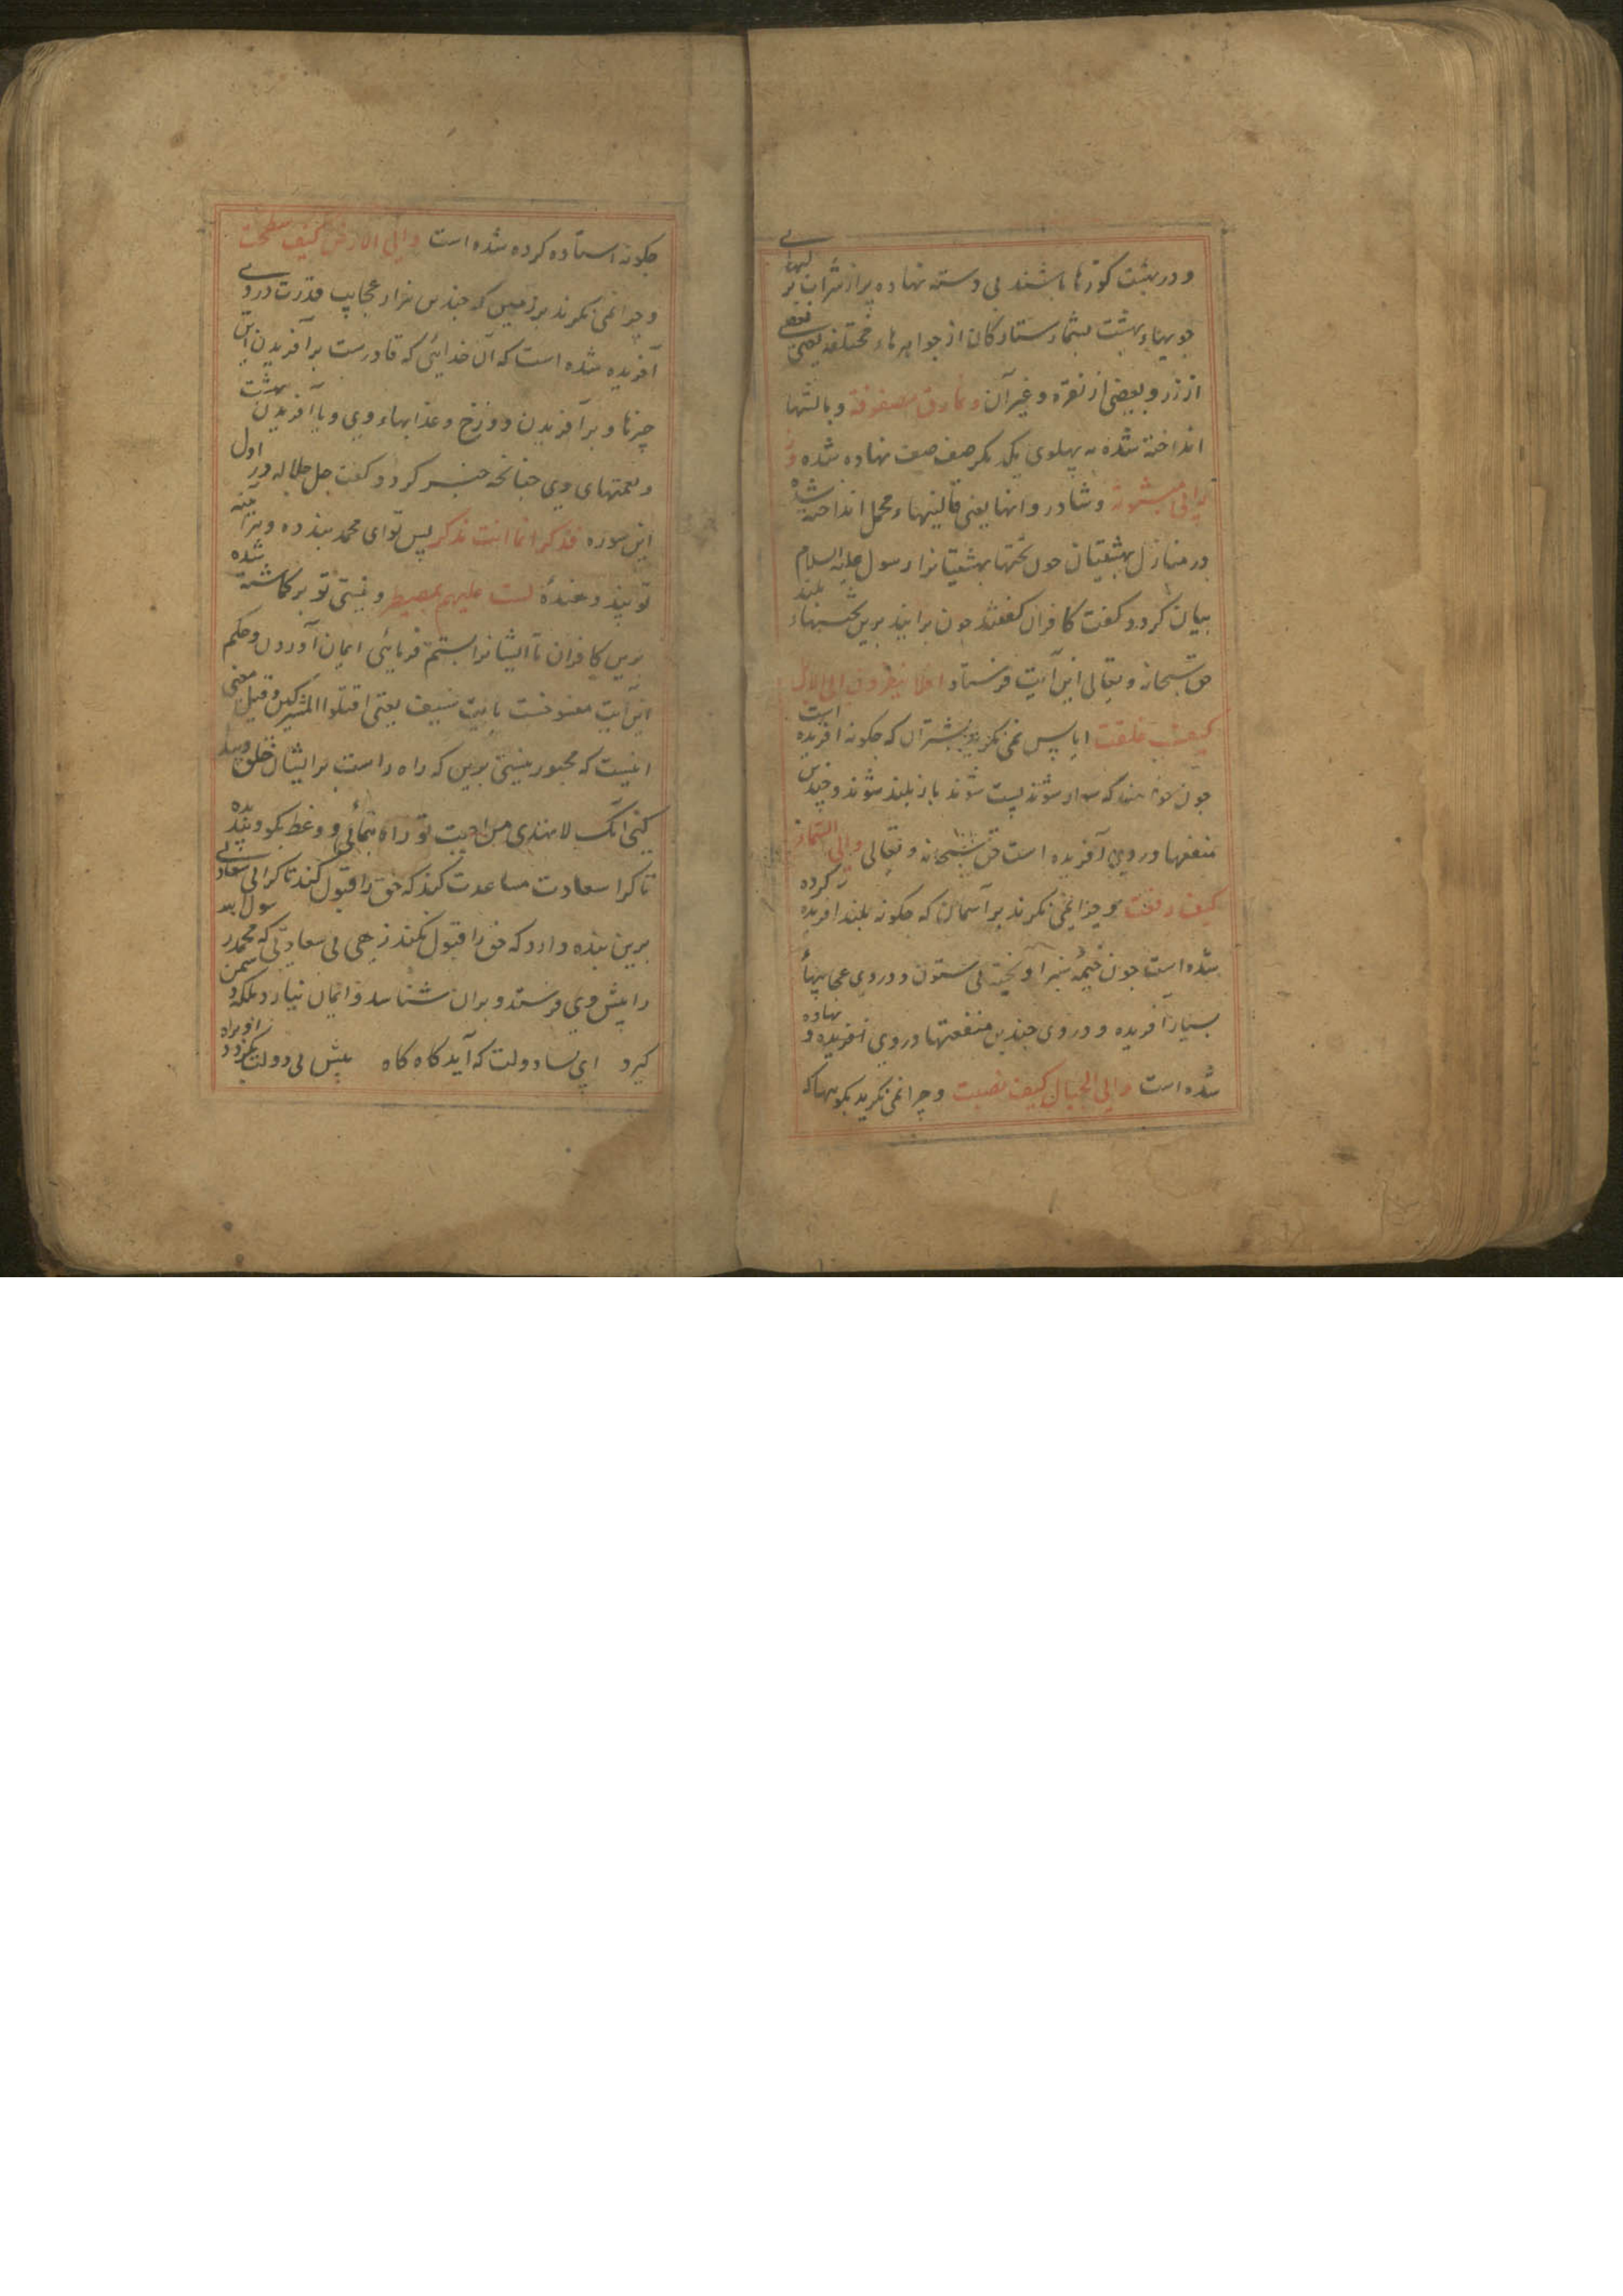 و در بهشت کوزها باشند بی دسته نهاده پر از شراب بر لبهای
جویهاء بهشت بشمار ستارکان از جواهرهاء مختلفه بعضی
از زر و بعضی از نقره و غیر آن ونمارق مصفوفة و بالشها
انداخته شده به پهلوی یکدیکر صف صف نهاده شده و
زرابی مبثوثة و شادروانها یعنی قالینها و مخمل انداخته شده
در منازل بهشتیان جون تختها بهشتیانرا رسول علیه السلام
بیان کرد و کفت کافران کفتند جون برایند برین تختهاء بلند
حق سبحانه و تعالی این آیت فرستاد افلا ینظرون الی الابل
کیف خلقت ایا پس نمی نکرند بشتران که جکونه افریده است
جون خواهند که سوار شوند پست شوند باز بلند شوند و جندین
منفعها در وی آفریده است حق سبحانه و تعالی والی السماء
کیف رفعت و چرا نمی نکرند بر آسمان که جکونه بلند افریده کرده
شده است جون خیمهٔ سبز آویخته بی ستون و در وی عجایبهاء
بسیار آفریده و در وی جندین منفعتها در وی افریده و نهاده
شده است والی الجبال کیف نصبت و چرا نمی نکرید بکوهها که
جکونه استاده کرده شده است والی الارض کیف سطحت
و چرا نمی نکرند بر زمین که جندین هزار عجایب قدرت در وی
آفریده شده است که آن خدائی که قادرست بر آفریدن این
چیزها و بر آفریدن دوزخ و عذابهاء وی و یا آفریدن بهشت
و نعمتهای وی جنانچه خبر کرد و کفت جل جلاله در اول
این سوره فذکر انما انت مذکر پس تو ای محمد پند ده
تو پند دهندهٔ لست علیهم بمصیطر و نیستی تو بر کماشته شده
برین کافران تا ایشانرا بستم فرمائی ایمان آوردن و حکم
این آیت منسوخست بایت سیف یعنی اقتلوا المشرکین و قیل معنی
اینست که مجبور نیستی برین که راه راست بر ایشان خلق
کنی انک لا تهدی من احببت تو راه نمائی و وعظ بکو و پند بده
تا کرا سعادت مساعدت کند که حق را قبول کند تا کرا بی سعادتی
برین بنده دارد که حق را قبول نکند زهی بی سعادتی که محمد رسول
را پیش وی فرستد و بران شناسد و ایمان نیارد بلکه دشمن
کیرد ای بسا دولت که آید کاه کاه پیش بی دولت بکردد او براه